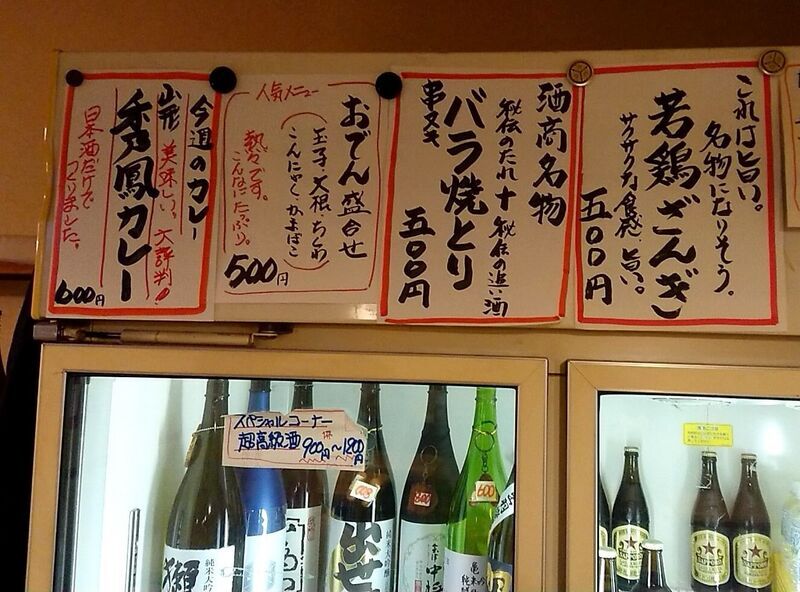 これは旨い。
名物になりそう。
若鶏ざんぎ
サクサクな食感、旨い。
五〇〇円
酒高名物
秘伝のたれ+秘伝の追い酒
バラ焼とり
串ヌキ
五〇〇円
人気メニュー
おでん盛合せ
(玉子・大根・ちくわ
こんにゃく・かまぼこ)
熱々です。
こんなにたっぷり。
500円
今週のカレー
山形 美味しい。大評判!
秀鳳カレー
日本酒だけで
つくりました。
600円
スペシャルコーナー
超高級酒 900円〜1200円
獺
純米大吟
出世
800
600
600
SAPPORO
SAPPORO
SAPPORO